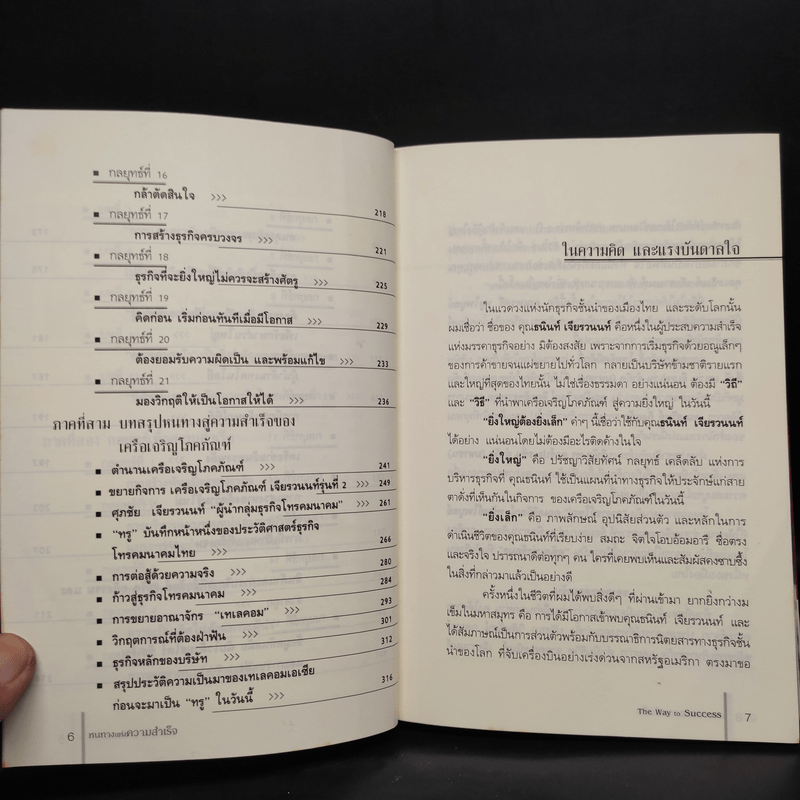 ■ กลยุทธ์ที่ 16
กล้าตัดสินใจ >>> 218
■ กลยุทธ์ที่ 17
การสร้างธุรกิจครบวงจร >>> 221
■ กลยุทธ์ที่ 18
ธุรกิจที่จะยิ่งใหญ่ไม่ควรจะสร้างศัตรู >>> 225
■ กลยุทธ์ที่ 19
คิดก่อน เริ่มก่อนทันทีเมื่อมีโอกาส >>> 229
■ กลยุทธ์ที่ 20
ต้องยอมรับความผิดเป็น และพร้อมแก้ไข >>> 233
■ กลยุทธ์ที่ 21
มองวิกฤติให้เป็นโอกาสให้ได้ >>> 236
ภาคที่สาม บทสรุปหนทางสู่ความสำเร็จของ
เครือเจริญโภคภัณฑ์
■ ตำนานเครือเจริญโภคภัณฑ์ >>> 241
■ ขยายกิจการ เครือเจริญโภคภัณฑ์ เจียรวนนท์รุ่นที่ 2 >>> 249
■ ศุภชัย เจียรวนนท์ "ผู้นำกลุ่มธุรกิจโทรคมนาคม" >>> 261
■ "ทรู" บันทึกหน้าหนึ่งของประวัติศาสตร์ธุรกิจ
โทรคมนาคมไทย >>> 266
■ การต่อสู้ด้วยความจริง >>> 280
■ ก้าวสู่ธุรกิจโทรคมนาคม >>> 284
■ การขยายอาณาจักร "เทเลคอม" >>> 293
■ วิกฤตการณ์ที่ต้องฝ่าฟัน >>> 301
■ ธุรกิจหลักของบริษัท >>> 312
■ สรุปประวัติความเป็นมาของเทเลคอมเอเซีย
ก่อนจะมาเป็น "ทรู" ในวันนี้ >>> 316
6 หนทางแห่งความสำเร็จ
ในความคิด และแรงบันดาลใจ
ในแวดวงแห่งนักธุรกิจชั้นนำของเมืองไทย และระดับโลกนั้น
ผมเชื่อว่า ชื่อของ คุณธนินท์ เจียรวนนท์ คือหนึ่งในผู้ประสบความสำเร็จ
แห่งมรรคาธุรกิจอย่าง มิต้องสงสัย เพราะจากการเริ่มธุรกิจด้วยอณูเล็กๆ
ของการค้าขายจนแผ่ขยายไปทั่วโลก กลายเป็นบริษัทข้ามชาติรายแรก
และใหญ่ที่สุดของไทยนั้น ไม่ใช่เรื่องธรรมดา อย่างแน่นอน ต้องมี "วิถี"
และ "วิธี" ที่นำพาเครือเจริญโภคภัณฑ์ สู่ความยิ่งใหญ่ ในวันนี้
"ยิ่งใหญ่ต้องยิ่งเล็ก" คำๆ นี้เชื่อว่าใช้กับคุณธนินท์ เจียรวนนท์
ได้อย่าง แน่นอนโดยไม่ต้องมีอะไรติดค้างในใจ
"ยิ่งใหญ่" คือ ปรัชญาวิสัยทัศน์ กลยุทธ์ เคล็ดลับ แห่งการ
บริหารธุรกิจที่ คุณธนินท์ ใช้เป็นแผนที่นำทางธุรกิจให้ประจักษ์แก่สาย
ตาดั่งที่เห็นกันในกิจการ ของเครือเจริญโภคภัณฑ์ในวันนี้
"ยิ่งเล็ก" คือ ภาพลักษณ์ อุปนิสัยส่วนตัว และหลักในการ
ดำเนินชีวิตของคุณธนินท์ที่เรียบง่าย สมถะ จิตใจโอบอ้อมอารี ซื่อตรง
และจริงใจ ปรารถนาดีต่อทุกๆ คน ใครที่เคยพบเห็นและสัมผัสคงซาบซึ้ง
ในสิ่งที่กล่าวมาแล้วเป็นอย่างดี
ครั้งหนึ่งในชีวิตที่ผมได้พบสิ่งดีๆ ที่ผ่านเข้ามา ยากยิ่งกว่างม
เข็มในมหาสมุทร คือ การได้มีโอกาสเข้าพบคุณธนินท์ เจียรวนนท์ และ
ได้สัมภาษณ์เป็นการส่วนตัวพร้อมกับบรรณาธิการนิตยสารทางธุรกิจชั้น
นำของโลก ที่จับเครื่องบินอย่างเร่งด่วนจากสหรัฐอเมริกา ตรงมาขอ
The Way to Success 7